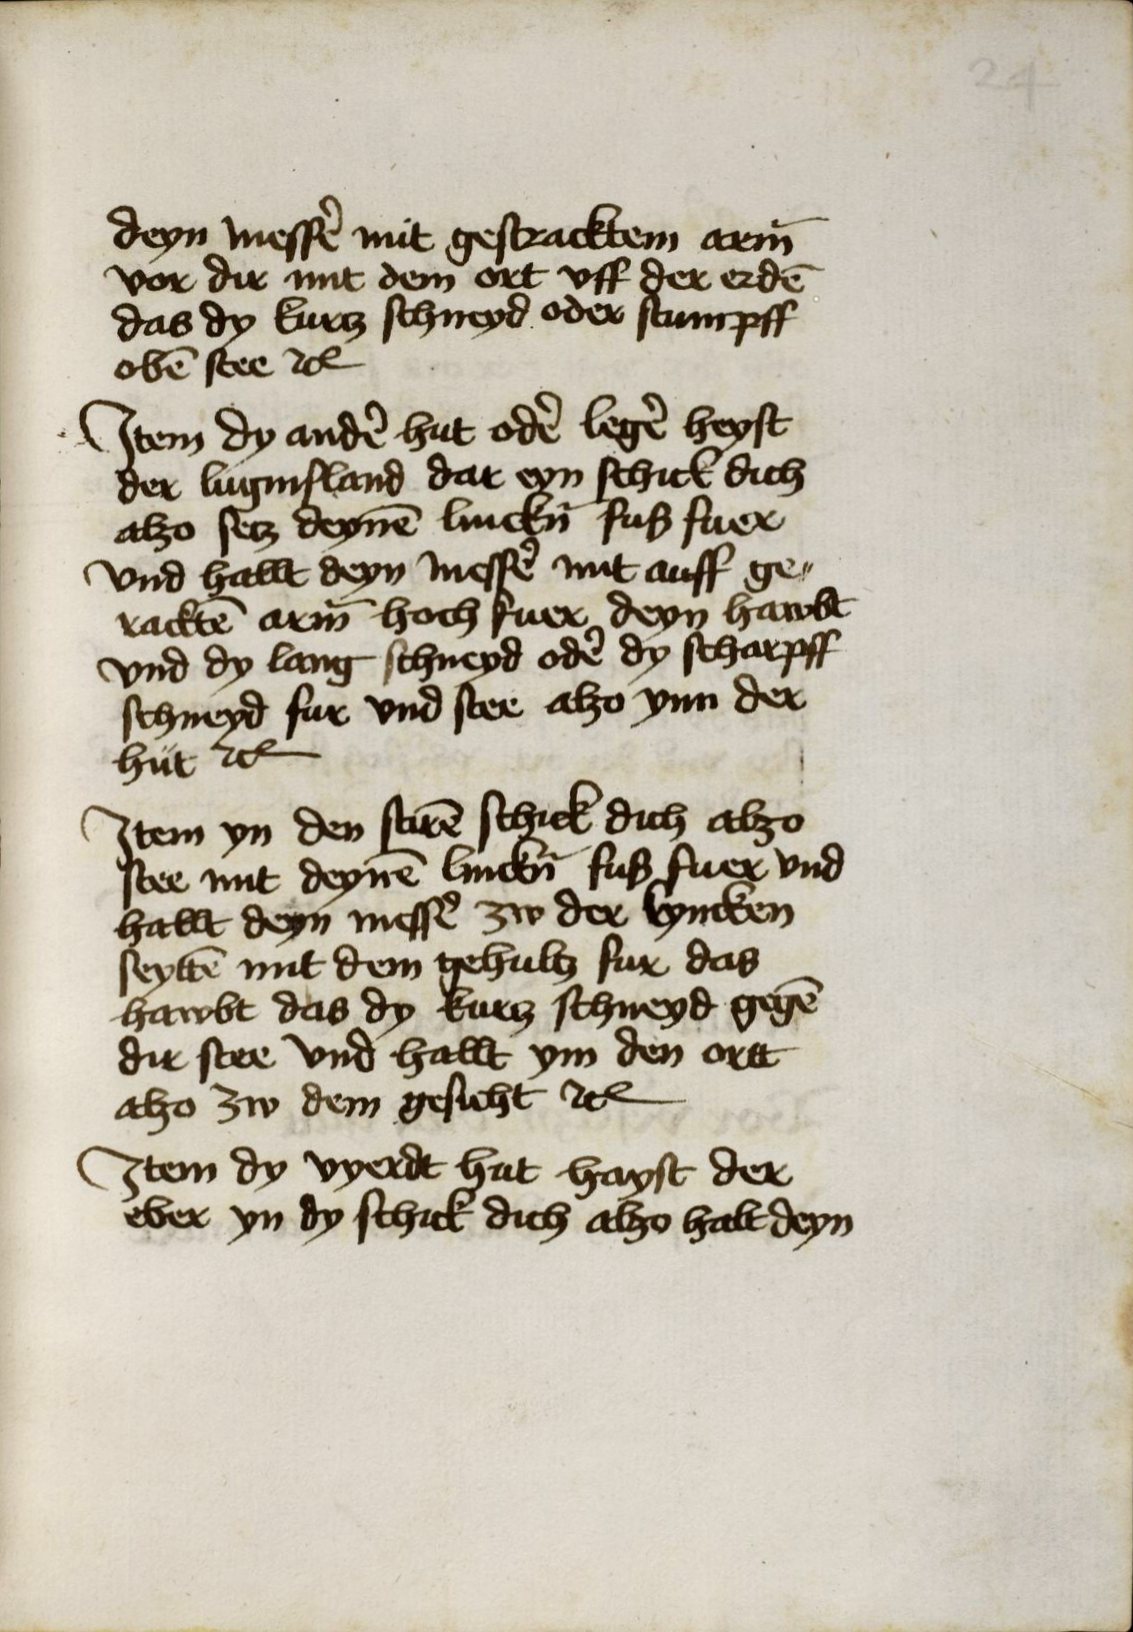 24
deyn messẽ mit gestracktem arm̄
vor dir mit dem ort vff der erdē
das dy kurtz schneyd oder stumpff
obē stee ⁊c̃
Item dy andẽ hut odẽ legẽ heyst
der luginsland dar eyn schick dich
alzo setz deynē linckn̄ fuß fuer
vnd hallt deyn messẽ mit auff ge〃
racktē arm̄ hoch fuer deyn hawbt
vnd dy lang schneyd odẽ dy scharpff
schneyd fur vnd stee alzo ynn der
hüt ⁊c̃
Item yn den stirē schick dich alzo
stee mit deynē linckn̄ fuß fuer vnd
hallt deyn messẽ zw der lyncken
seyttē mit dem gehultz fur das
hawbt das dy kurtz schneyd gegē
dir stee vnd hallt ym den ortt
alzo zw dem gesicht ⁊c̃
Item dy vyerdt hut hayst der
eber yn dy schick dich alzo halt deyn